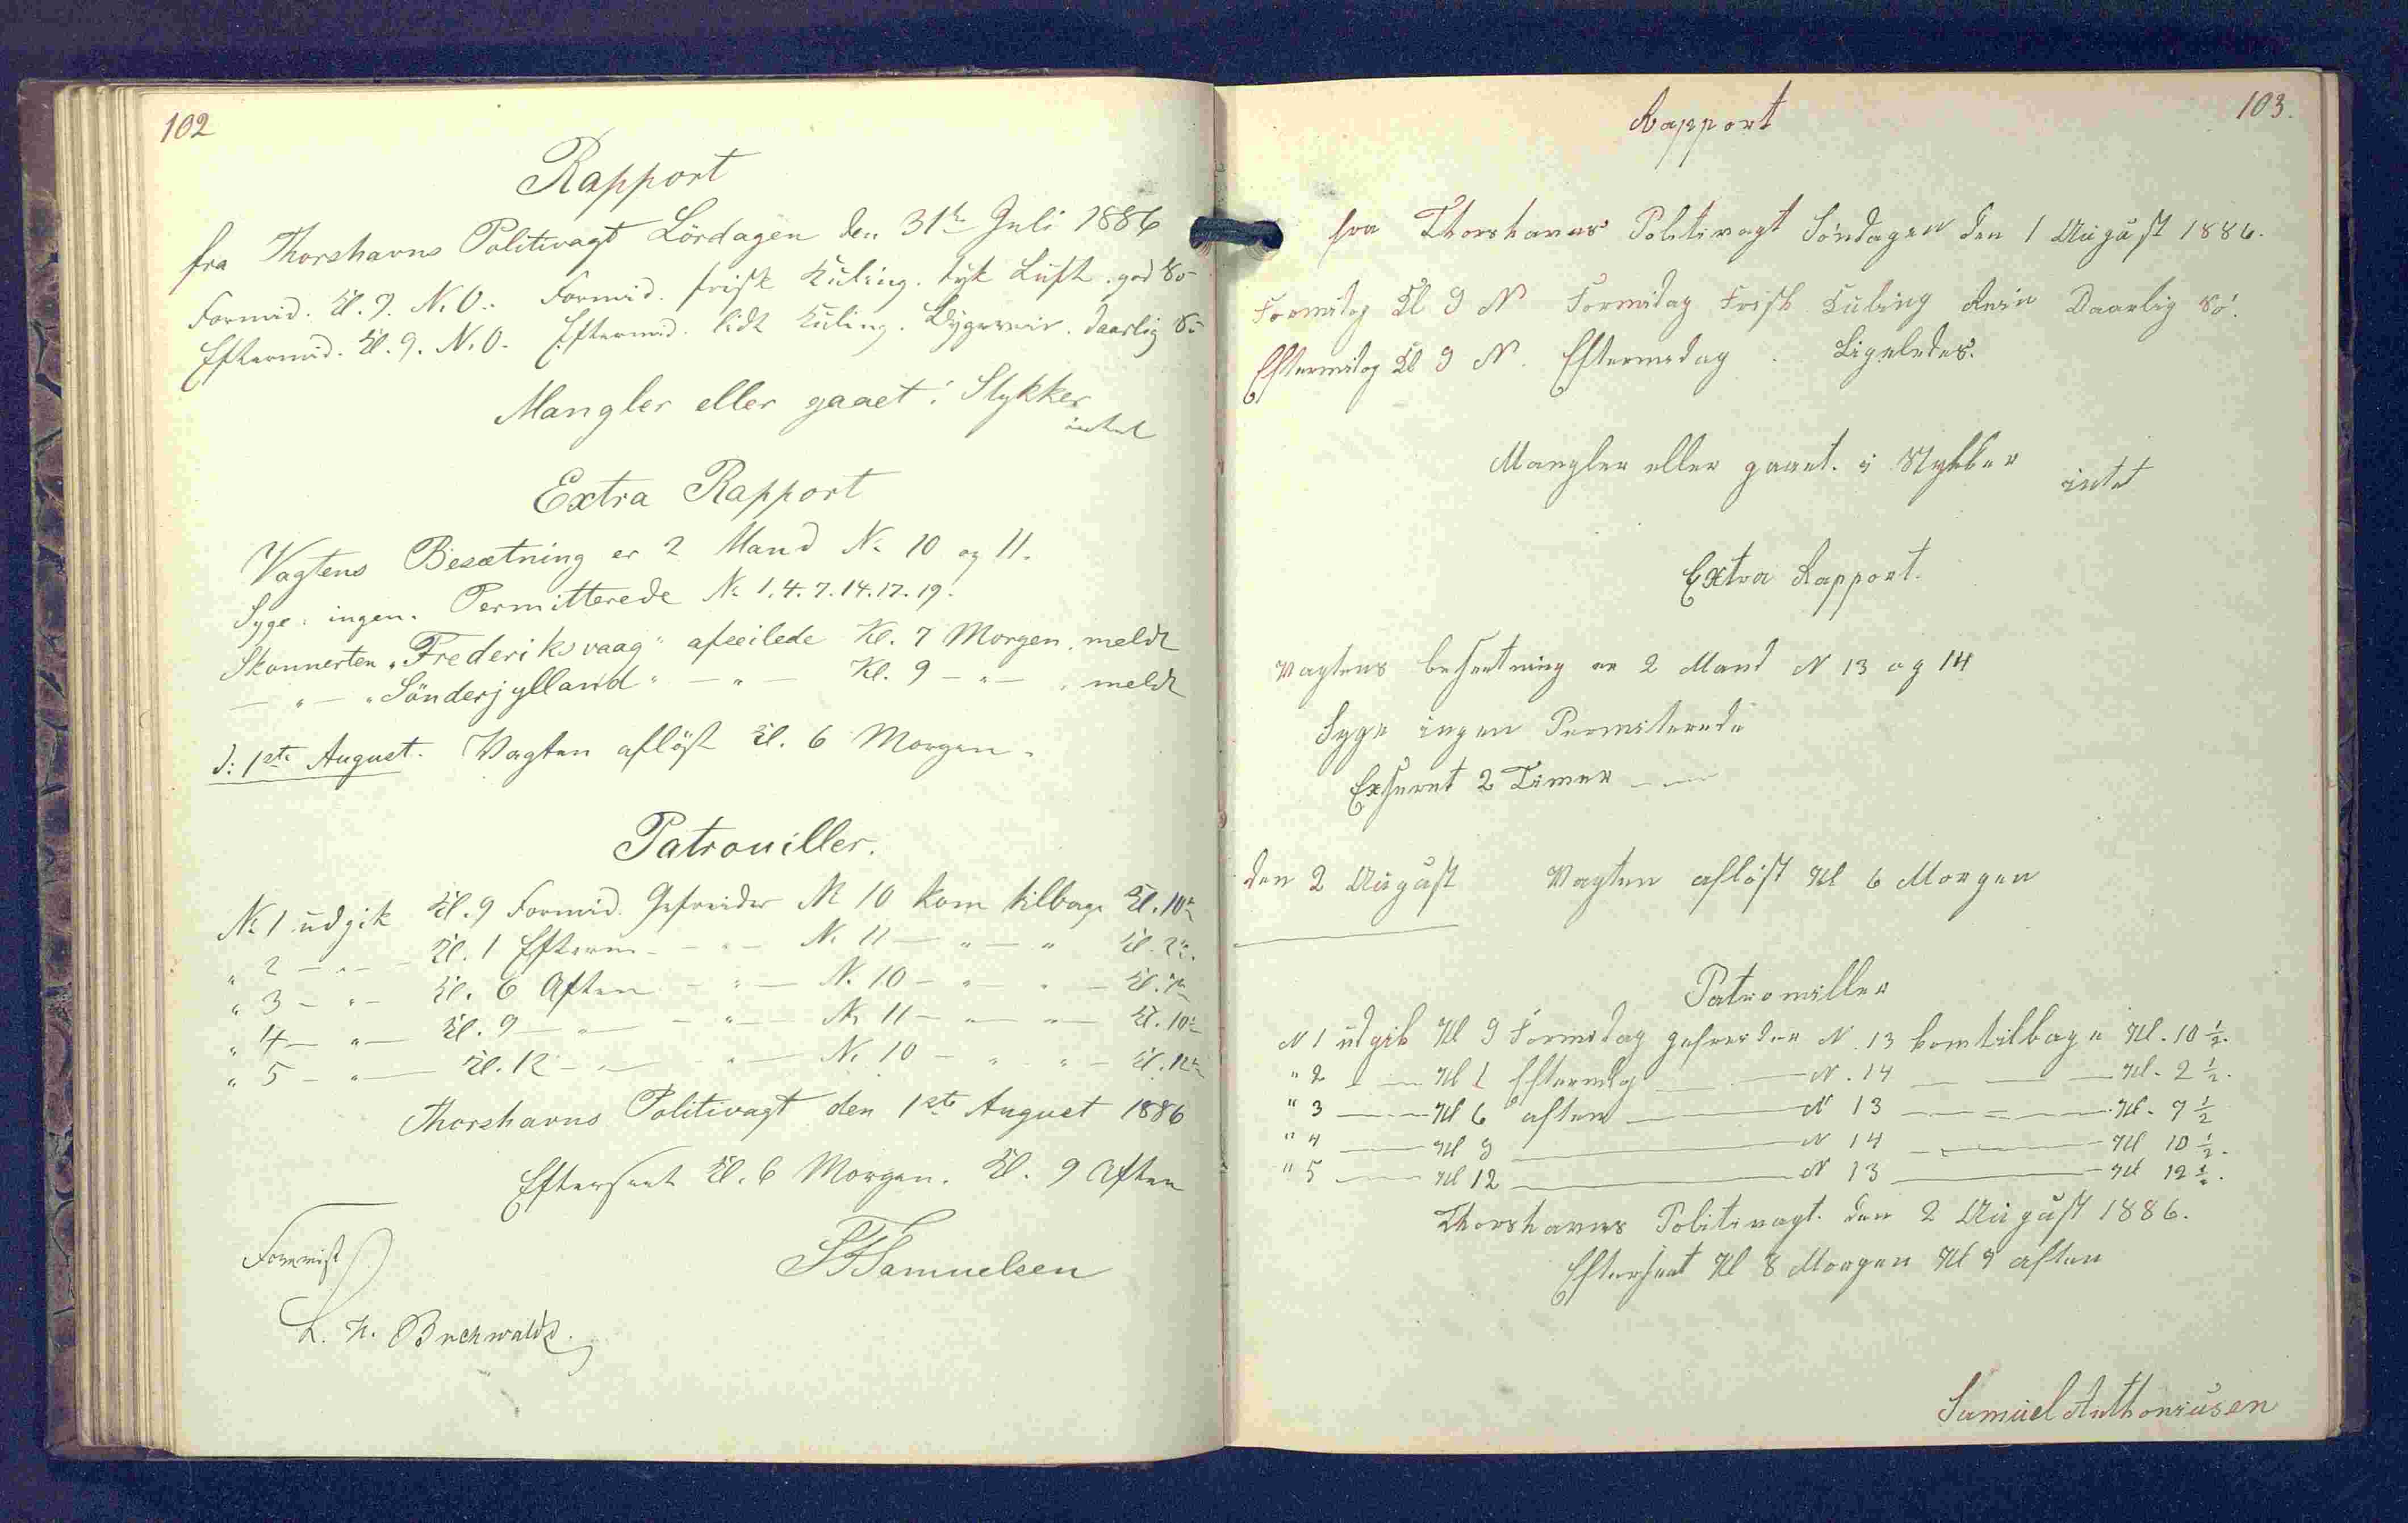 102
Rapport
fra Thorshavns Politivagt Lördagen den 31te Juli 1886
Formid. Kl. 9. N.O. Formid. frisk Kuling. tyk Luft. god Sö
Eftermid. Kl. 9. N.O. Eftermid. lidt Kuling. Bygeveir. daarlig Sö
Mangler eller gaaet i Stykker
intet
Extra Rapport
Vagtens Besætning er 2 Mand No 10 og 11.
Syge: ingen. Permitterede No 1.4.7.14.17.19.
Skonnerten "Frederiksvaag" afseilede Kl. 7 Morgen. meldt
— " — "Sönderjylland" — " — Kl. 9 — " — . meldt
d: 1ste August. Vagten aflöst Kl. 6 Morgen.
Patrouiller.
No 1 udgik Kl. 9 Formid. Gefreider No 10 kom tilbage Kl. 10½
" 2 — " — Kl. 1 Efterm — " — No 11 — " — " Kl. 2½.
" 3 — " — Kl. 6 Aften — " — No 10 — " — " — Kl. 7½
" 4 — " — Kl. 9 — " — — " — No 11 — " — " — Kl. 10½
" 5 — " — Kl. 12 — " — " — No 10 — " " — Kl. 12½
Thorshavns Politivagt den 1ste August 1886
Efterseet Kl. 6 Morgen. Kl. 9 Aften
Formist
Samuelsen
Buchwaldt.
103.
Rapport
fra Thorshavns Politivagt Söndagen den 1 August 1886.
Formidag Kl 9 N Formidag Frisk Kuling Rein Daarlig Sö.
Eftermidag Kl 9 N. Eftermidag . Ligeledes.
Mangler eller gaaet. i Stykker
intet
Extra Rapport.
Vagtens besætning er 2 Mand N 13 og 14
Syge ingen Permiterede
Exseret 2 Timer — —
den 2 August Vagten aflöst Kl 6 Morgen
Patrouiller
N 1 udgik Kl 9 Formidag gefreider N. 13 kom tilbage Kl. 10 ½.
" 2 — — Kl 1 Eftermidag — — N. 14 — — — Kl. 2 ½.
" 3 — — Kl 6 aften — N 13 — — — Kl. 7 ½
" 4 — Kl 9 — N 14 — — Kl 10 ½.
" 5 — Kl 12 — N 13 — Kl 12 ½.
Thorshavns Politivagt. den 2 August 1886.
Efterseet Kl 8 Morgen Kl 9 aften
Samuel Anthoniusen